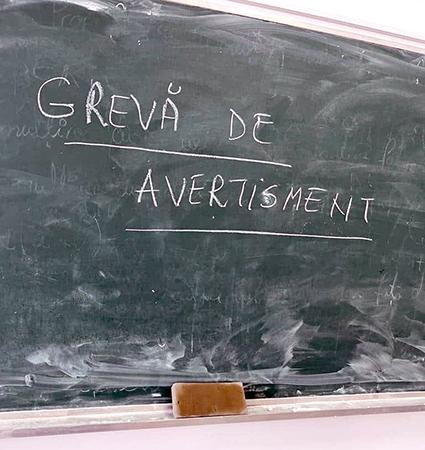 GREVĂ DE
AVERTISMENT